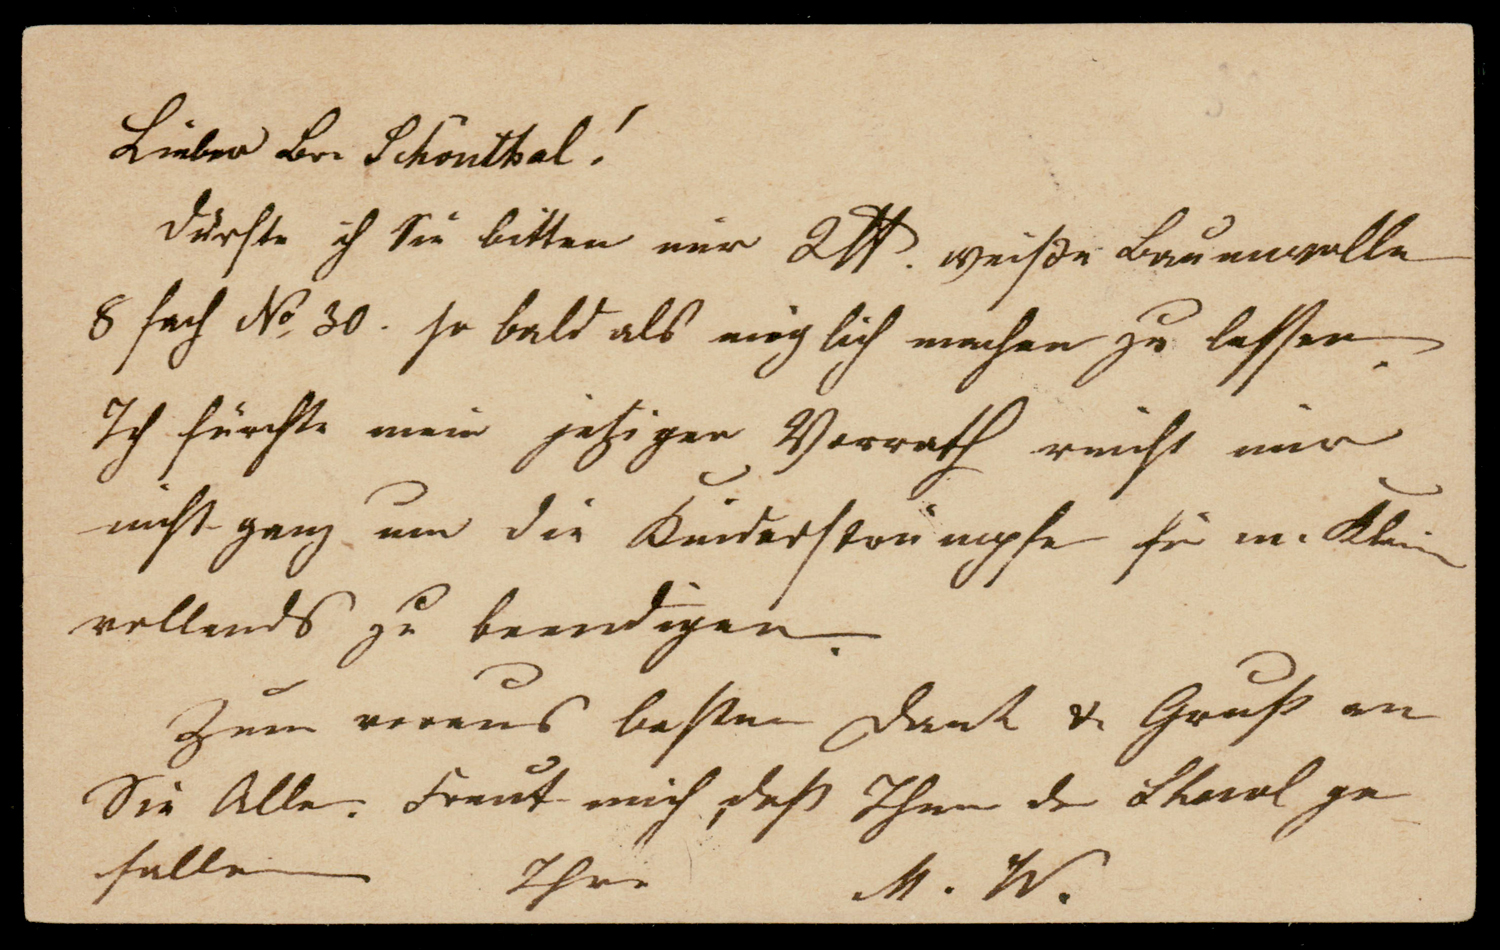 Lieber Br. Schönthal!
Dürfte ich Sie bitten mir 2 ℔. weiße Baumwolle
8 fach No. 30. so bald als möglich machen zu lassen.
Ich fürchte mein jetziger Vorrath reicht mir
nicht ganz um die Kinderstrümpfe für m. Klein
vollends zu beendigen.
Zum voraus besten Dank & Gruß an
Sie Alle. Freut mich, daß Ihnen der Shawl ge
fallen Ihre M. W.